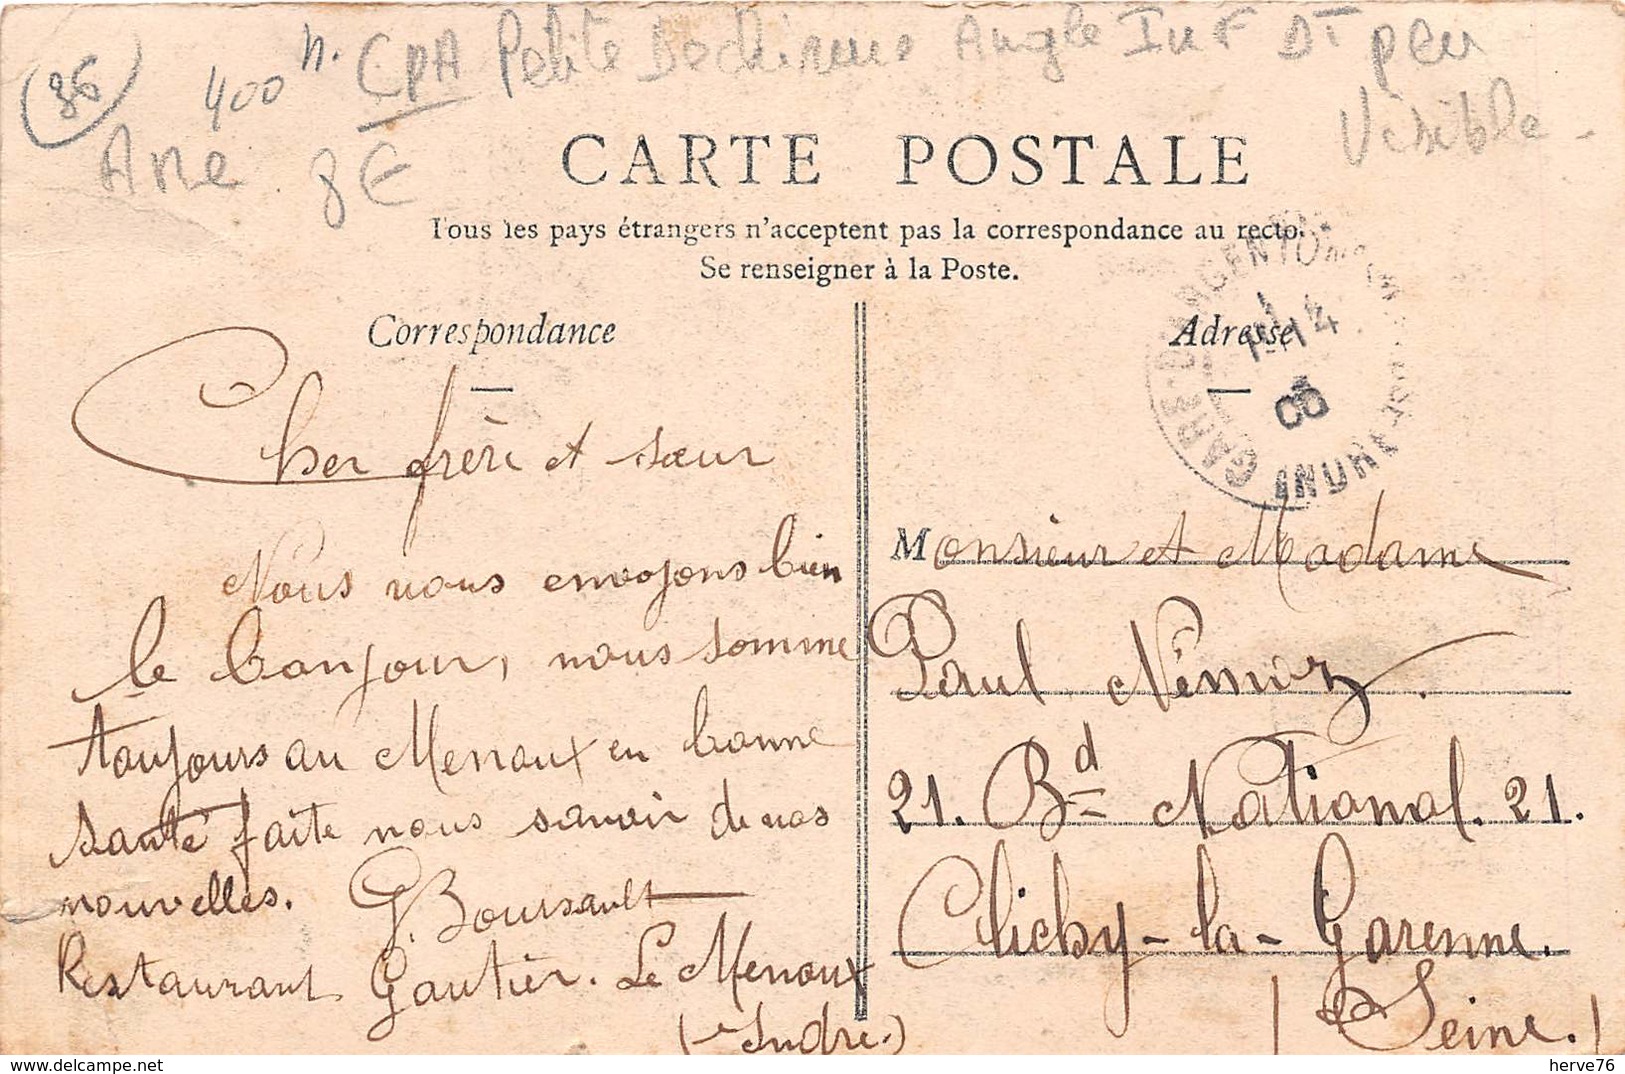 (86)
400 n. CPA Petite Dechirure Angle Inf Dt peu
Visible -
Ane 8€
CARTE POSTALE
Tous les pays étrangers n'acceptent pas la correspondance au recto.
Se renseigner à la Poste.
Correspondance
Adresse
GARE-D'ARGENTON
INDRE
14
06
Cher frère et sœur
Nous nous envoyons bien
le bonjour, nous somme
toujours au Menoux en bonne
santé faite nous savoir de vos
nouvelles. G. Boursault
Restaurant Gautier. Le Menoux
(Indre.)
Monsieur et Madame
Paul Némoz.
21. Bd National. 21.
Clichy-la-Garenne.
(Seine.)
herve76